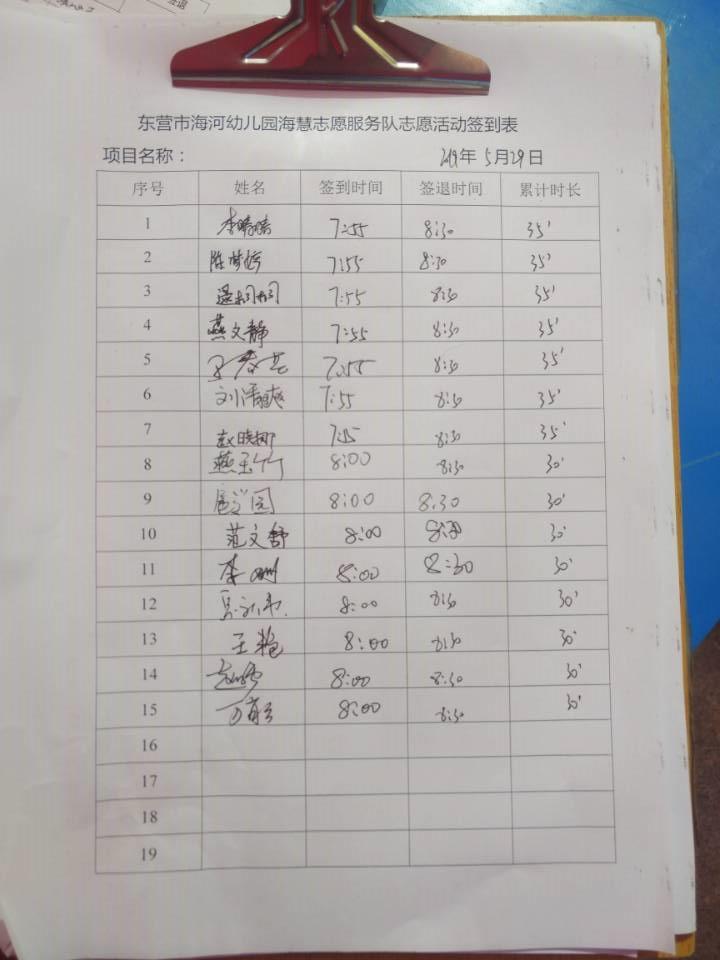 签退
东营市海河幼儿园海慧志愿服务队志愿活动签到表
项目名称： 2019年 5月29日
序号 姓名 签到时间 签退时间 累计时长
1 李晴晴 7:55 8:30 35'
2 陈梦婷 7:55 8:30 35'
3 7:55 8:30 35'
4 燕文静 7:55 8:30 35'
5 7:55 8:30 35'
6 7:55 8:30 35'
7 赵晓娜 7:55 8:30 35'
8 燕玉竹 8:00 8:30 30'
9 8:00 8.30 30'
10 范文舒 8:00 8:30 30'
11 李 8:00 8:30 30'
12 8:00 8:30 30'
13 王艳 8:00 8:30 30'
14 8:00 8:30 30'
15 8:00 8:30 30'
16
17
18
19